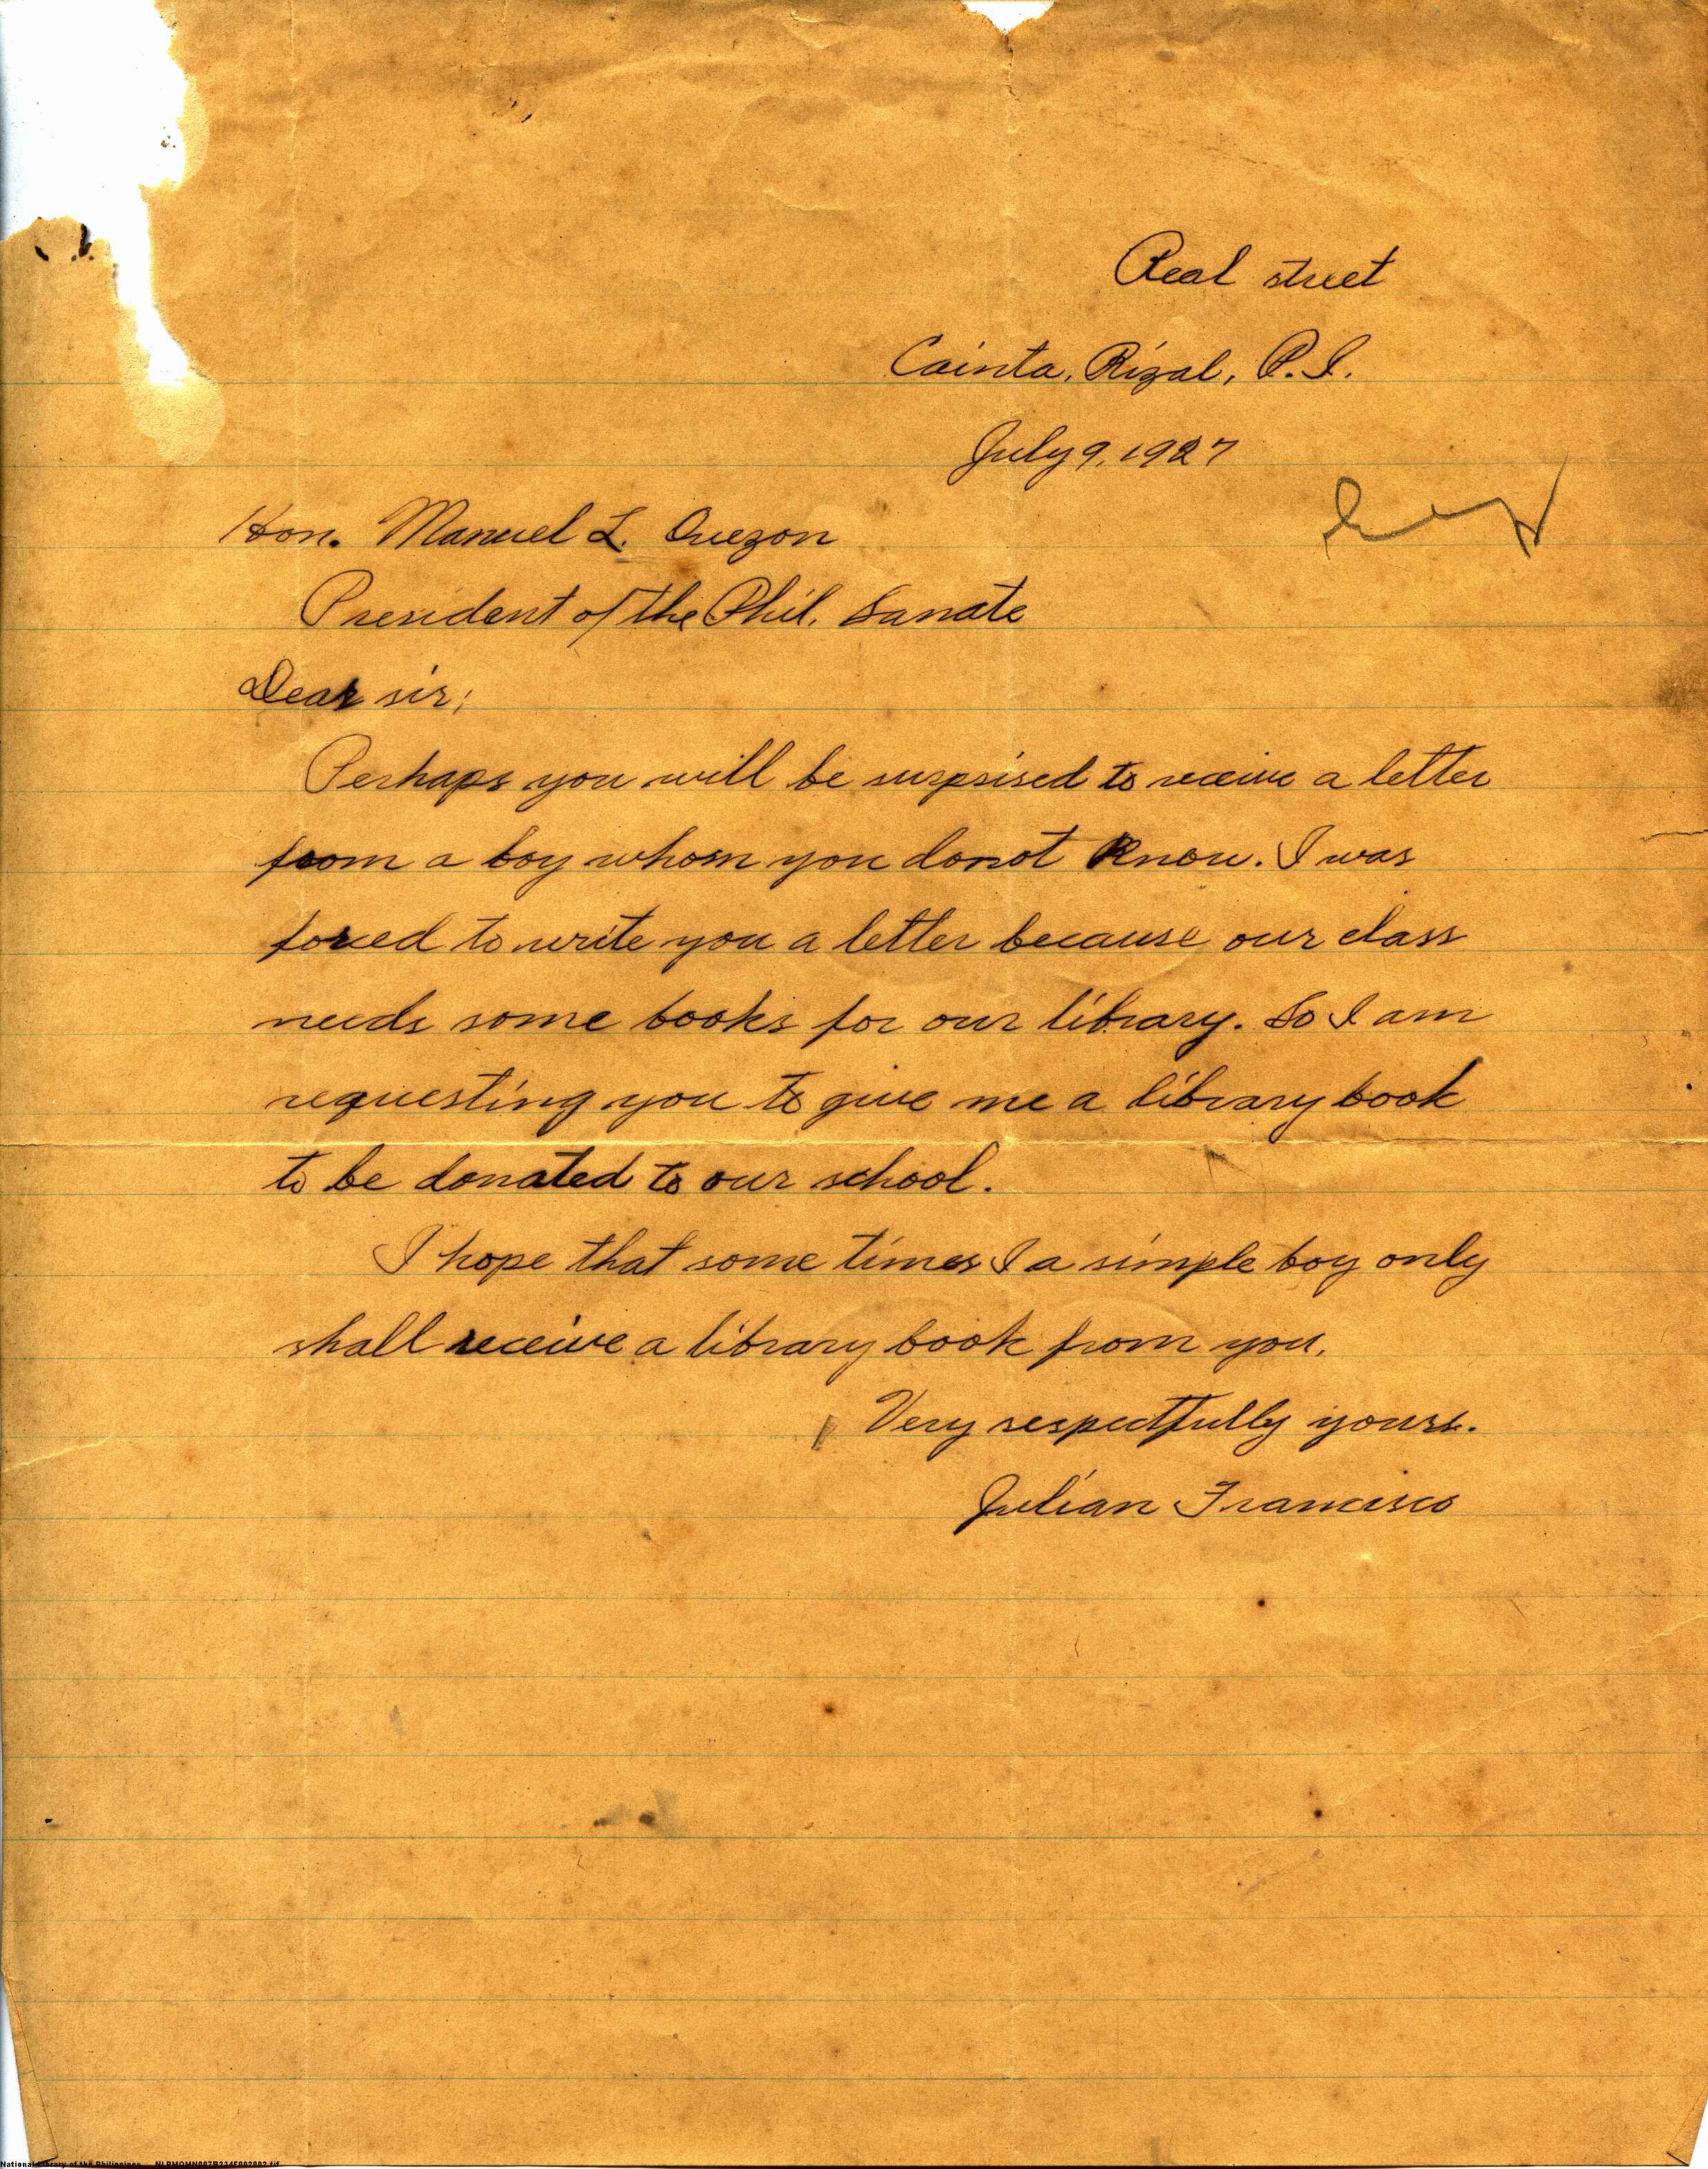 Real street
Cainta, Rizal, P.I.
July 9, 1927
Hon. Manuel L. Quezon
President of the Phil. Sanate
Dear sir;
Perhaps you will be surpsised to receive a letter
from a boy whom you donot know. I was
forced to write you a letter because our class
needs some books for our library. So I am
requesting you to give me a library book
to be donated to our school.
I hope that some times I a simple boy only
shall receive a library book from you.
Very respectfully yours.
Julian Francisco
National Library of the Philippines